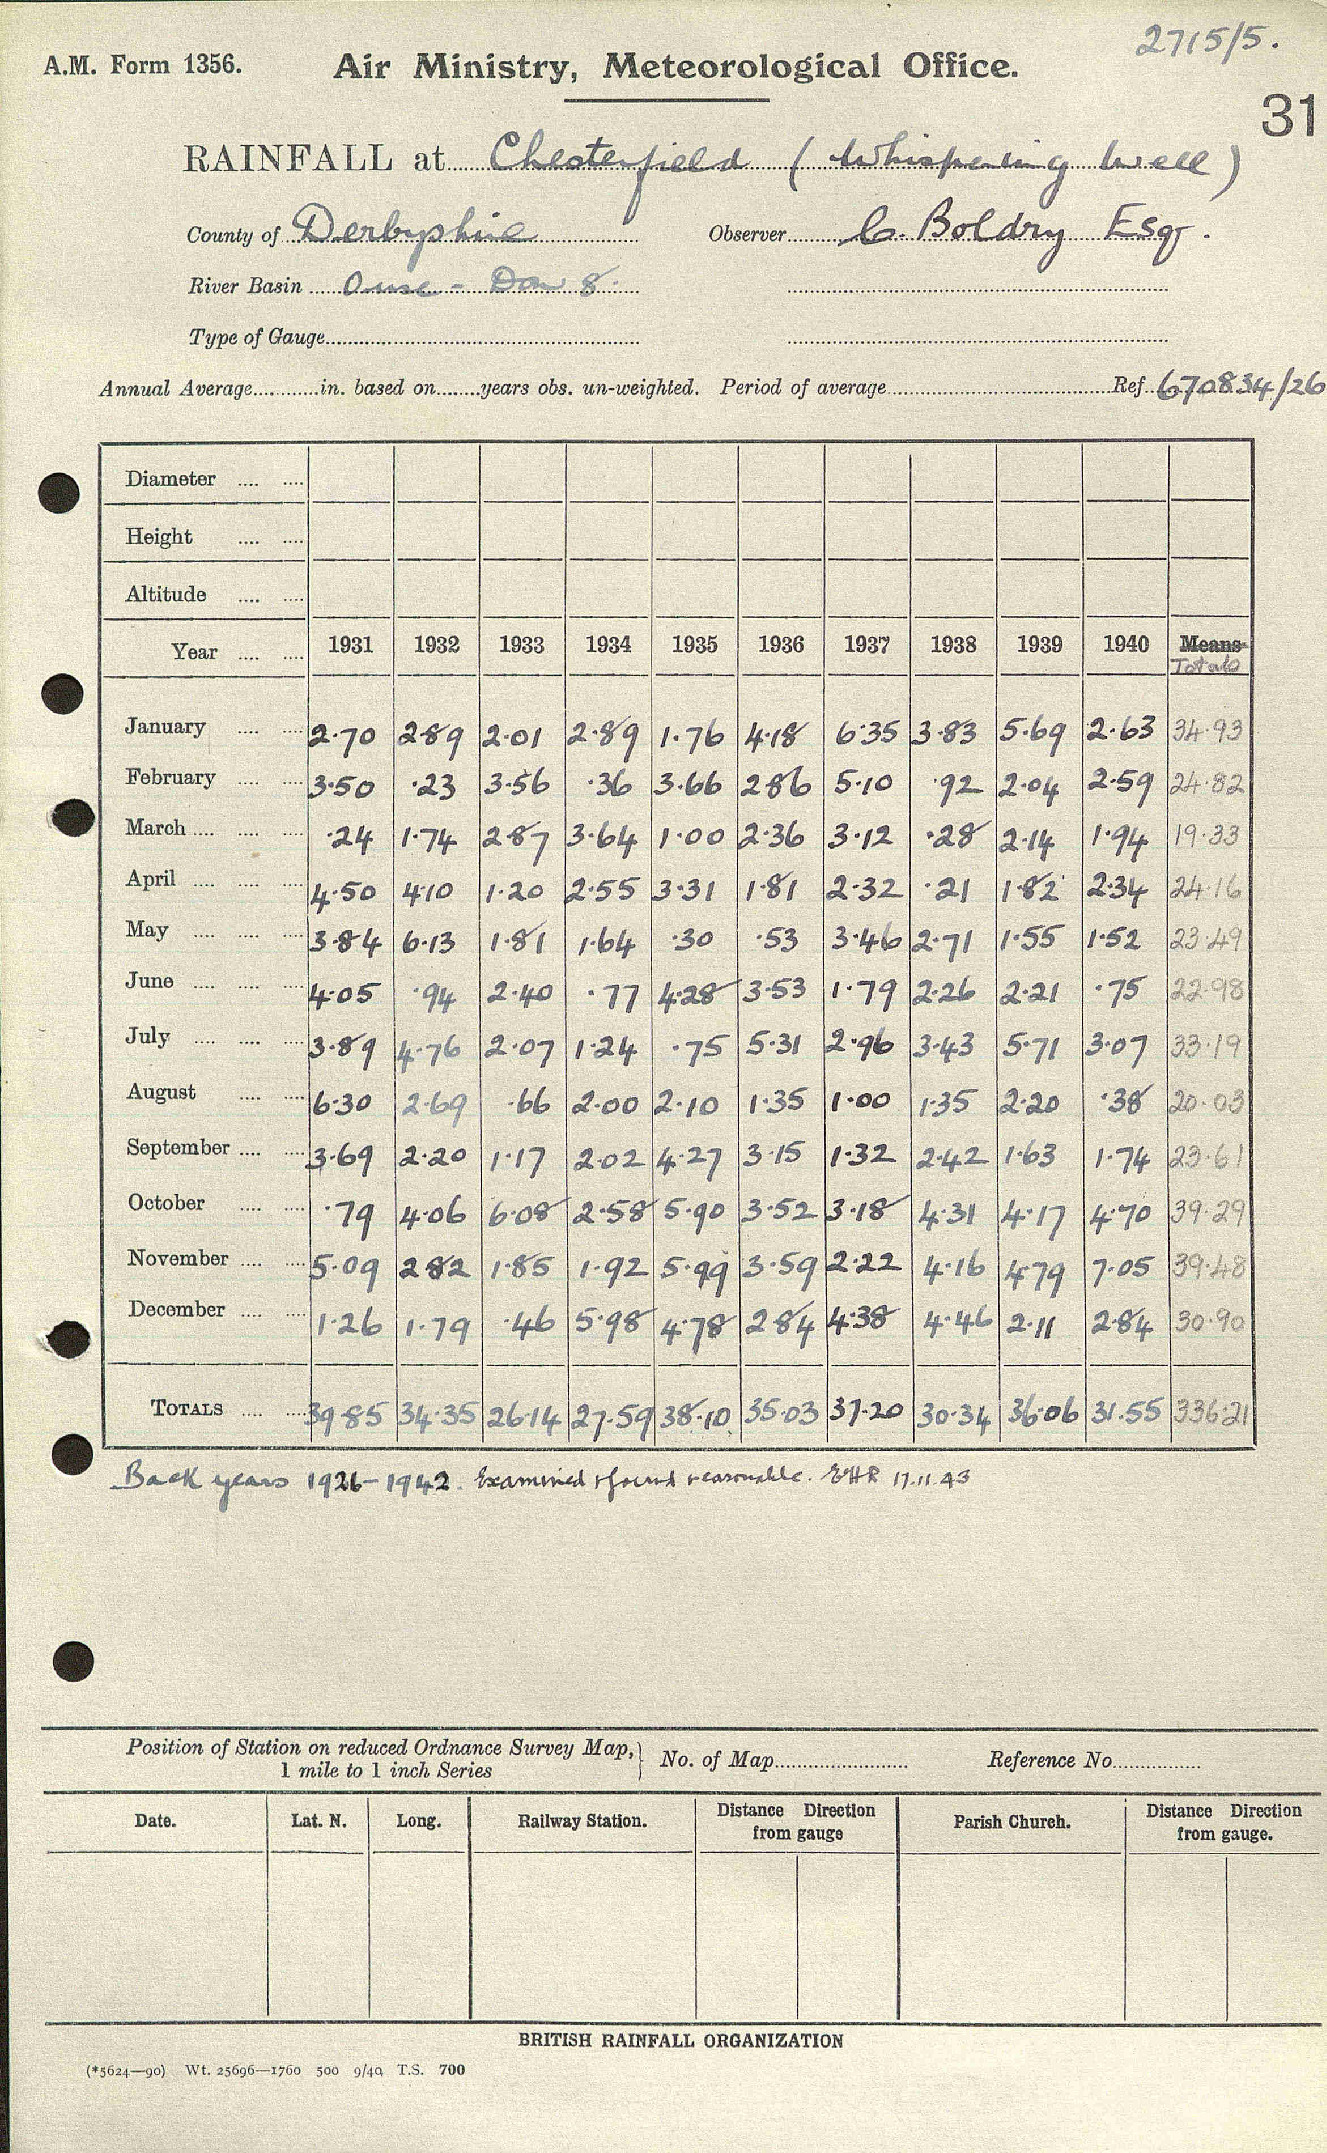 2715/5.
A.M. Form 1356. Air Ministry, Meteorological Office.
31
RAINFALL at Chesterfield (Whispering Well)
County of Derbyshire Observer C. Boldry Esq.
River Basin Ouse - Don 8.
Type of Gauge
Annual Average in. based on years obs. un-weighted. Period of average Ref. 670834/26
Diameter
Height
Altitude
Year 1931 1932 1933 1934 1935 1936 1937 1938 1939 1940 Means
Totals
January 2.70 2.89 2.01 2.89 1.76 4.18 6.35 3.83 5.69 2.63 34.93
February 3.50 .23 3.56 .36 3.66 2.86 5.10 .92 2.04 2.59 24.82
March .24 1.74 2.87 3.64 1.00 2.36 3.12 .28 2.14 1.94 19.33
April 4.50 4.10 1.20 2.55 3.31 1.81 2.32 .21 1.82 2.34 24.16
May 3.84 6.13 1.81 1.64 .30 .53 3.46 2.71 1.55 1.52 23.49
June 4.05 .94 2.40 .77 4.28 3.53 1.79 2.26 2.21 .75 22.98
July 3.89 4.76 2.07 1.24 .75 5.31 2.96 3.43 5.71 3.07 33.19
August 6.30 2.69 .66 2.00 2.10 1.35 1.00 1.35 2.20 .38 20.03
September 3.69 2.20 1.17 2.02 4.27 3.15 1.32 2.42 1.63 1.74 23.61
October .79 4.06 6.08 2.58 5.90 3.52 3.18 4.31 4.17 4.70 39.29
November 5.09 2.82 1.85 1.92 5.99 3.59 2.22 4.16 4.79 7.05 39.48
December 1.26 1.79 .46 5.98 4.78 2.84 4.38 4.46 2.11 2.84 30.90
TOTALS 39.85 34.35 26.14 27.59 38.10 35.03 37.20 30.34 36.06 31.55 336.21
Back years 1926-1942. Examined & found reasonable. EHR 17.11.43
Position of Station on reduced Ordnance Survey Map, No. of Map Reference No.
1 mile to 1 inch Series
Date. Lat. N. Long. Railway Station. Distance from gauge Direction Parish Church. Distance Direction from gauge.
BRITISH RAINFALL ORGANIZATION
(*5624—90) Wt. 25696—1760 500 9/40 T.S. 700